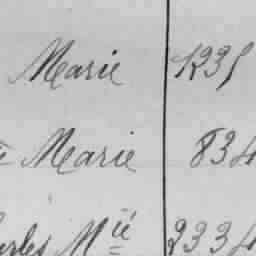 Marie 1235
Marie 834
Charles Mie 2334